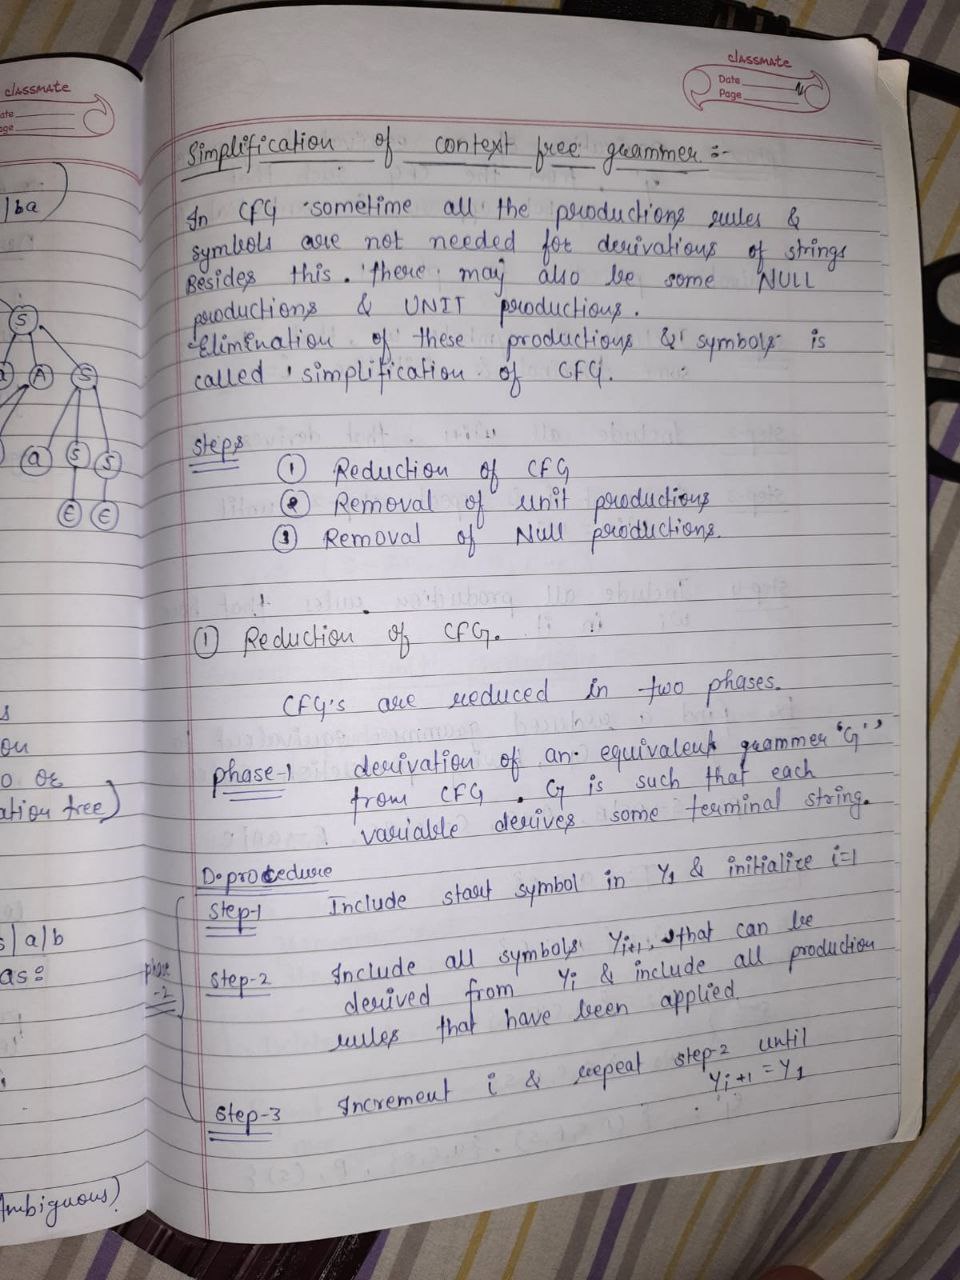 classmate
ate
age
| ba
S
A
S
a
S
S
ε
ε
on
o or
ation free)
s | a | b
as:
Ambiguous)
classmate
Date
Page
Simplification of context free grammer :-
In CFG sometime all the productions rules &
symbols are not needed for derivations of strings
Besides this. there may also be some NULL
productions & UNIT productions.
Elimination of these productions & symbols is
called simplification of CFG.
steps
① Reduction of CFG
② Removal of unit productions
③ Removal of Null productions.
① Reduction of CFG.
CFG's are reduced in two phases.
phase-1 derivation of an equivalent grammer "G'"
from CFG. G is such that each
variable derives some terminal string.
D. procedure
Step-1 Include start symbol in Y1 & initialize i=1
phase
-2
Step-2 Include all symbols Yi+1, that can be
derived from Yi & include all production
rules that have been applied.
Step-3 Increment i & repeat step-2 until
Yi+1 = Y1